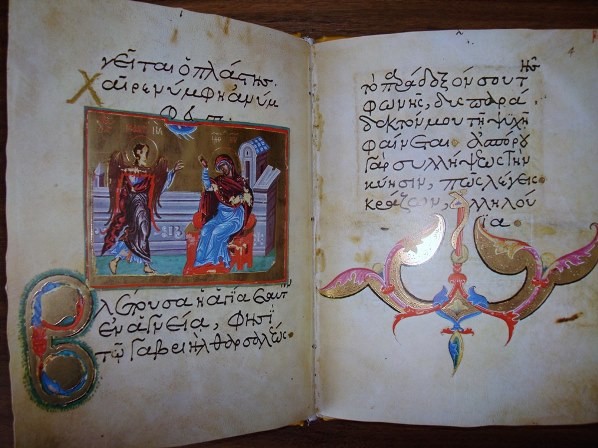 γεῖται ὁ πλάστης.
Χαῖρε νύμφη ἀνύμ
Βλέπουσα ἡ ἁγία ἑαυτὴν
ἐν ἁγνεία, φησὶ
τῷ Γαβριὴλ θαρσαλέως
τὸ παράδοξόν σου τῆς
φωνῆς, δυσπαρά
δεκτόν μου τῇ ψυχῇ
φαίνεται· ἀσπόρου
γὰρ συλλήψεως τὴν
κύησιν, πῶς λέγεις
κράζων, ἀλληλού
ϊα